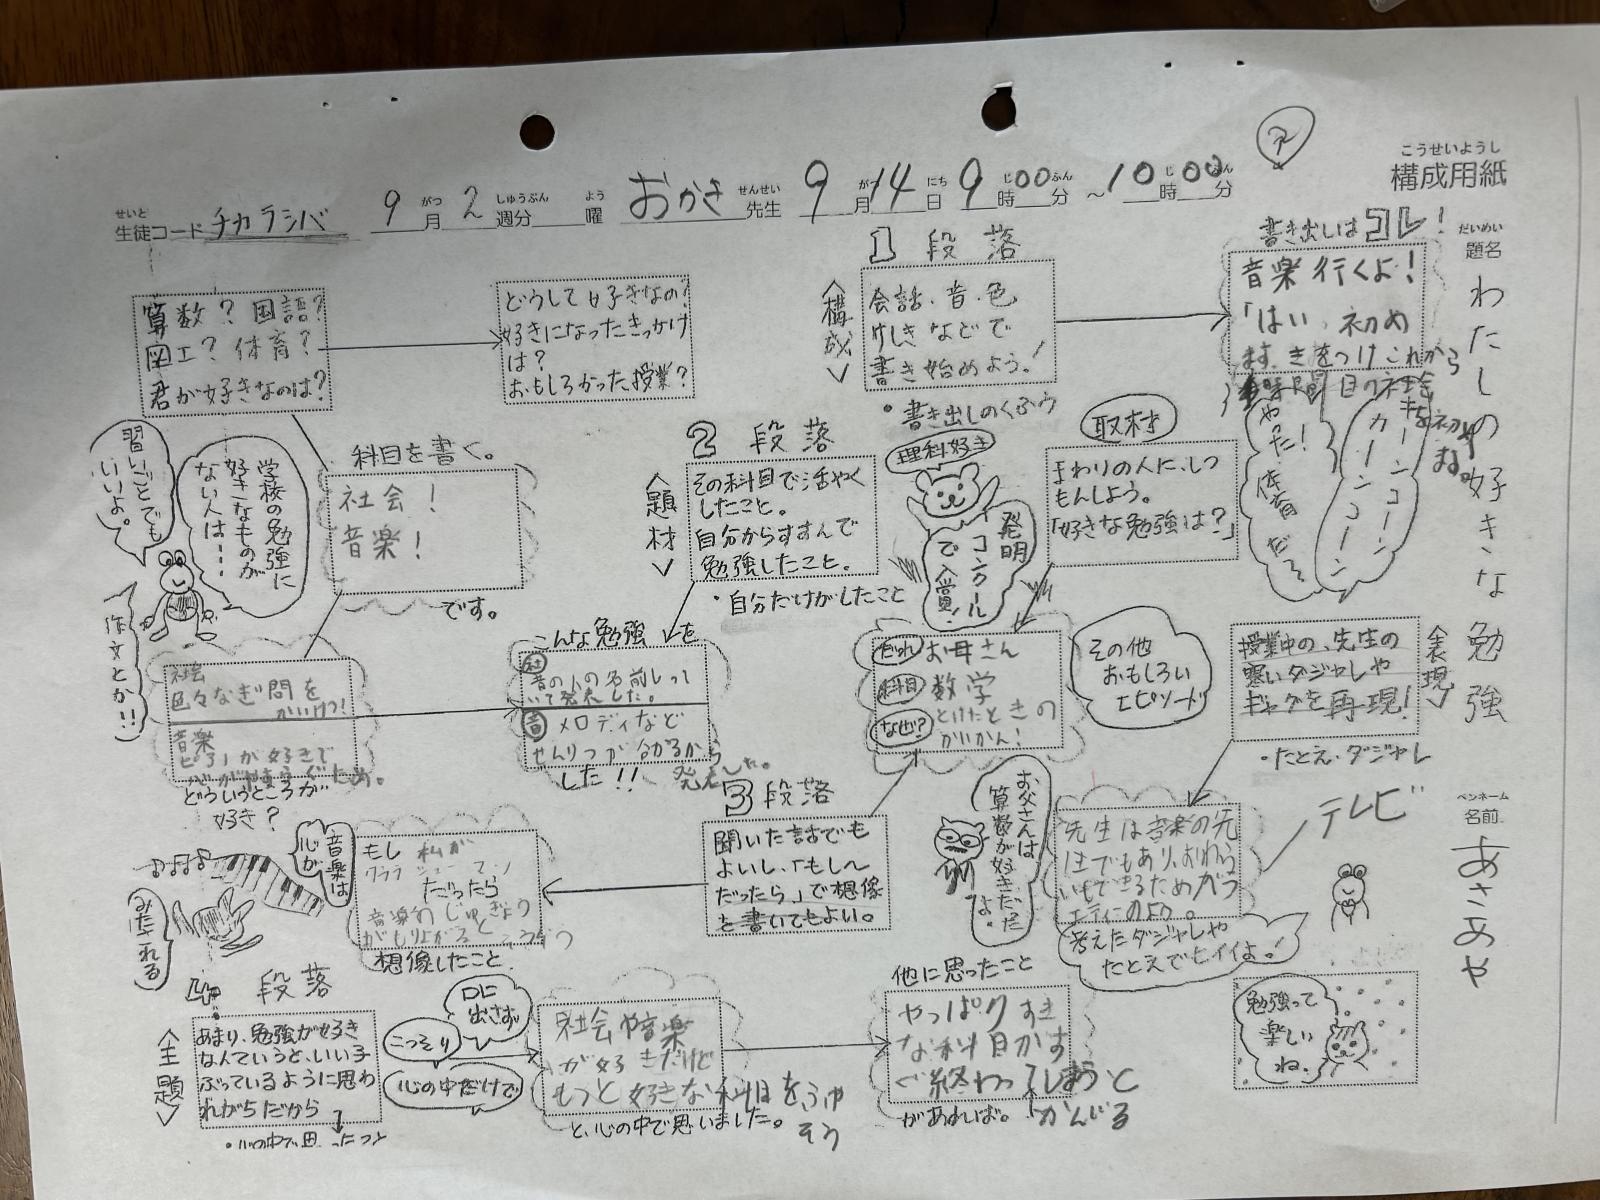 ア
こうせいようし
構成用紙
せいと
生徒コード チカラシバ 9月2週分 曜 おかき先生 9月14日9時00分～10時00分
だいめい
題名
わたしの好きな勉強
ペンネーム
名前
あさあや
1段落
〈構成〉
会話・音・色
けしきなどで
書き始めよう!
・書き出しのくふう
書き出しはコレ!
音楽行くよ!
「はい、初め
ます。きをつけこれから
時間目の社会
を初め
ます。
キーンコーン
カーンコーン
やった!体育だぞ
どうして好きなの?
好きになったきっかけ
は?
おもしろかった授業?
算数?国語?
図工?体育?
君が好きなのは?
習いごとでも
いいよ。
学校の勉強に
好きなものが
ない人は…
作文とか!!
科目を書く。
社会!
音楽!
です。
2段落
〈題材〉
その科目で活やく
したこと。
自分からすすんで
勉強したこと。
・自分だけがしたこと
理科好き
発明
コンクール
で入賞!
取材
まわりの人に、しつ
もんしよう。
「好きな勉強は?」
だれ お母さん
科目 数学
なぜ? とけたときの
かいかん!
その他
おもしろい
エピソード
〈表現〉
授業中の、先生の
寒いダジャレや
ギャグを再現!
・たとえ・ダジャレ
こんな勉強を
社
昔の人の名前しっ
いて発表した。
音 メロディなど
せんりつが分かるから
発表した。
した!!
社会
色々なぎ問を
かいけつ!
音楽
ピアノが好きで
どういうところが
好き?
3段落
聞いた話でも
よいし、「もし～
だったら」で想像
を書いてもよい。
お父さんは
算数が好きだった
よ。
先生は音楽の先
生でもあり、おわら
いもできるためバラ
エティーのよう。
テレビ
考えたダジャレや
たとえでヒイイよ!
もし 私が
だったら
音楽の じゅぎょう
がもり上がると
想像したこと
音楽は
心が
みだれる
4段落
〈主題〉
あまり、勉強が好き
なんていうと、いい子
ぶっているように思わ
れがちだから
・心の中で思ったこと
口に
出さず
こっそり
心の中だけで
社会や音楽
が好きだけど
もっと好きな科目をふや
そう
と、心の中で思いました。
他に思ったこと
やっぱりすき
な科目がす
ぐ終わってしまうと
かんじる
があれば。
勉強って
楽しい
ね。